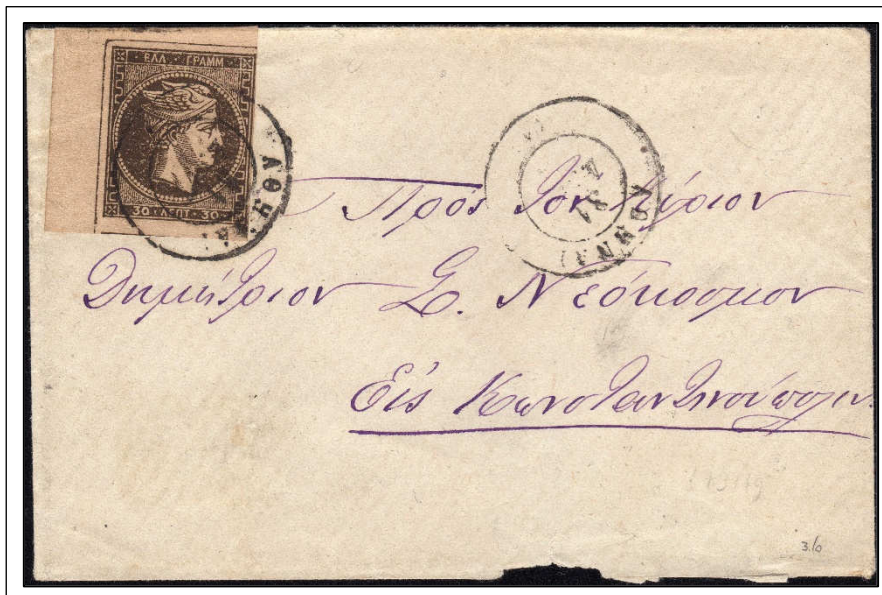 ΕΛΛ · ΓΡΑΜΜ
30 · ΛΕΠΤ · 30
Πρὸς τὸν Κύριον
Δημήτριον Σ. Νεόκοσμον
Εἰς Κωνσταντινούπολιν.
3.10